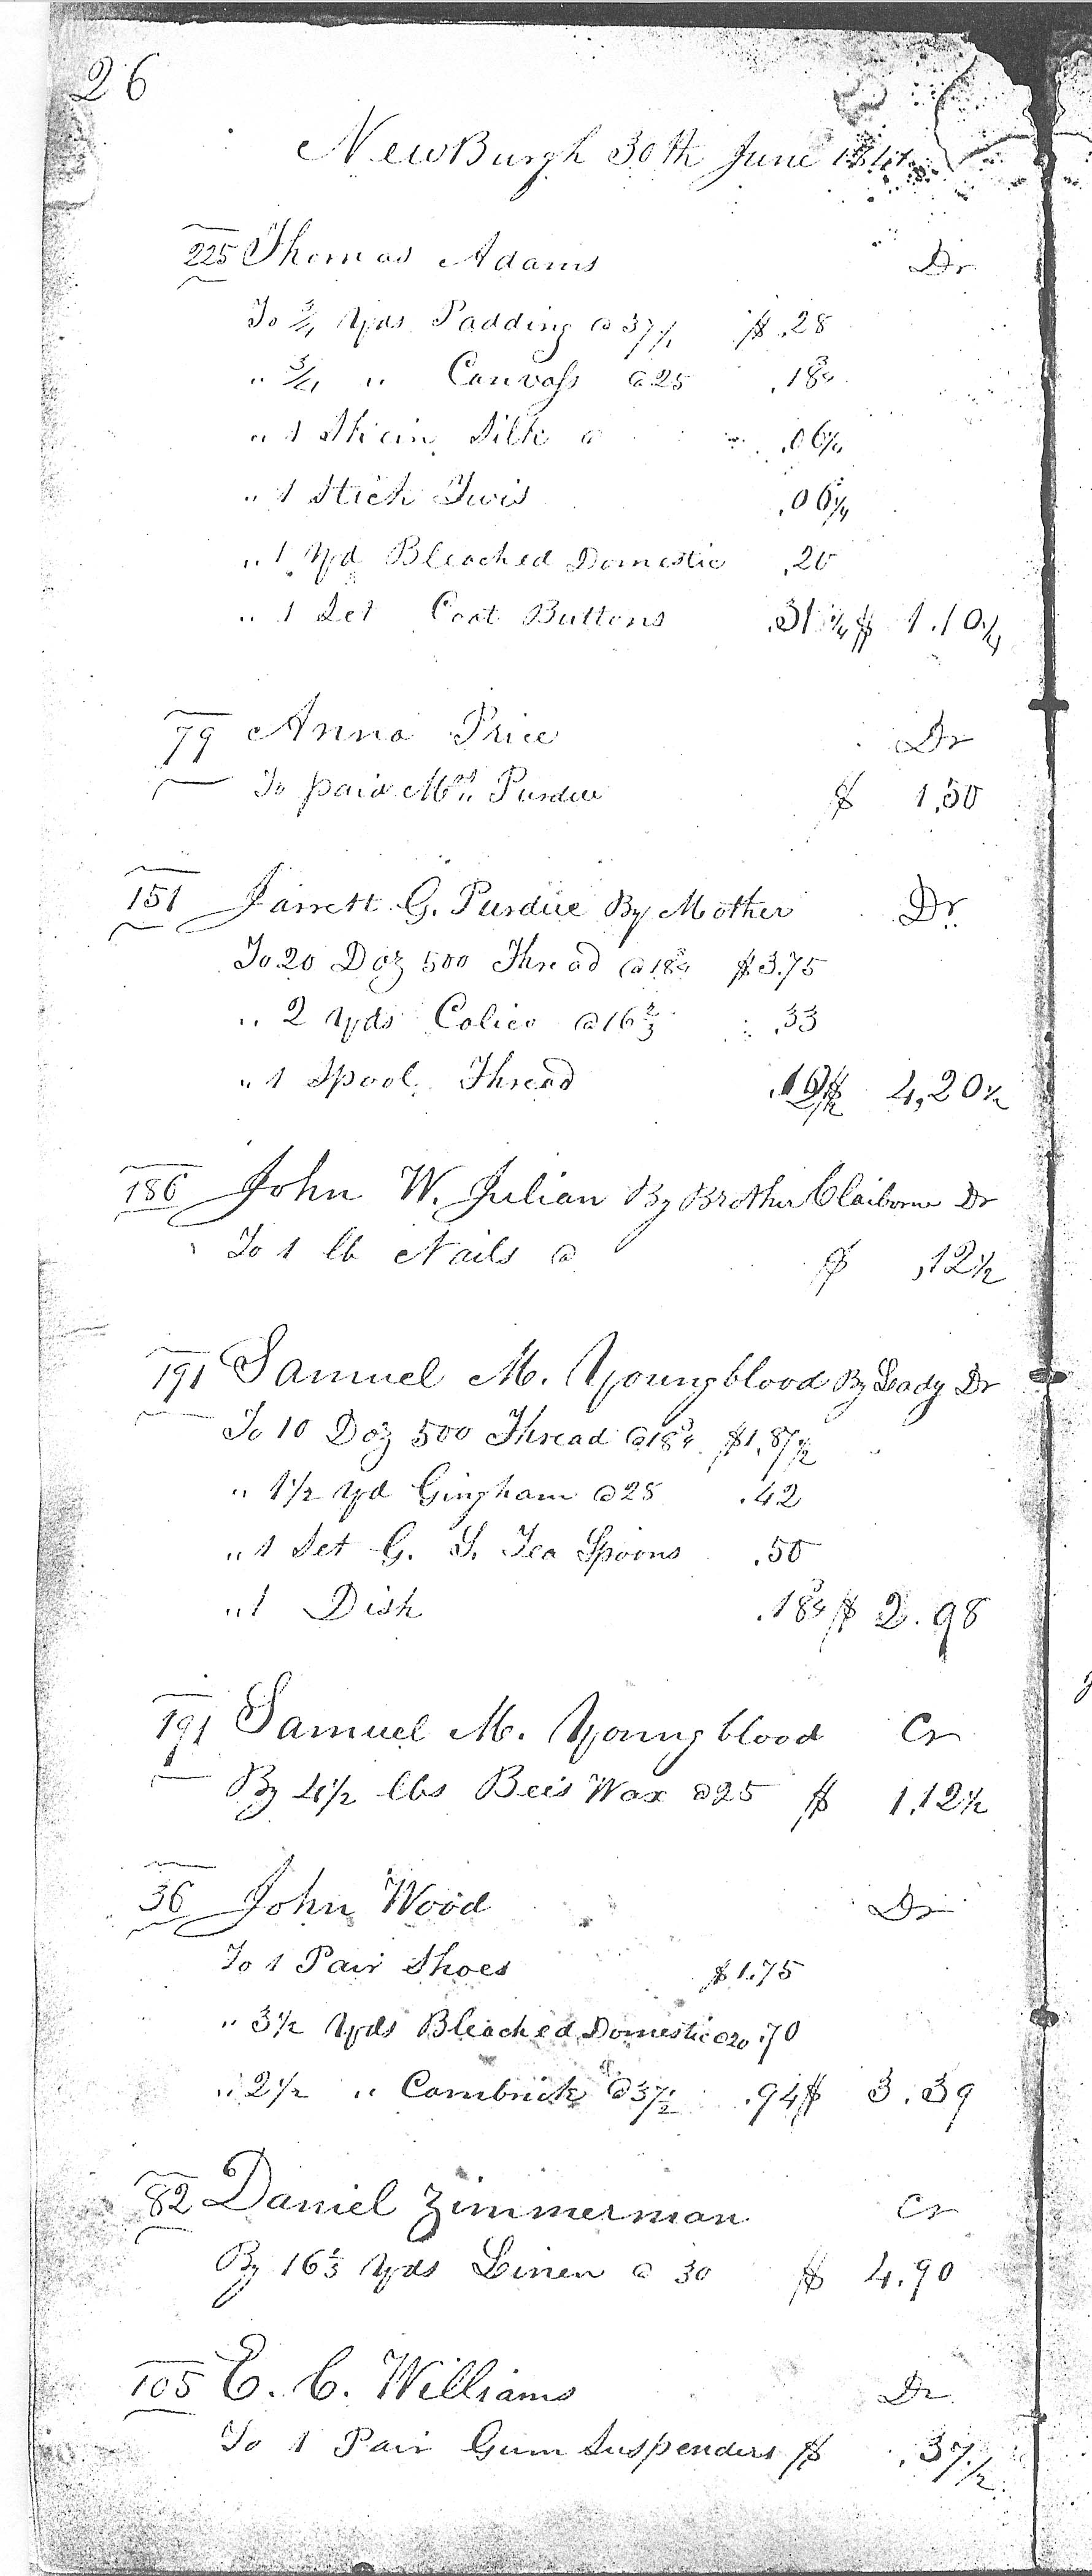 26
NewBurgh 30th June 1841
225 Thomas Adams Dr
To 3/4 Yds Padding @ 37 1/2 $ .28
" 3/4 " Canvass @ 25 .18 3/4
" 1 Skein Silk @ .06 1/4
" 1 Stick Twis .06 1/4
" 1 Yd Bleached Domestic .20
" 1 Set Coat Buttons .31 1/4 $ 1.10 1/4
79 Anna Price Dr
To paid Mrs Purdue $ 1,50
151 Jarrett G. Purdue By Mother Dr
To 20 Doz 500 Thread @ 18 3/4 $3.75
" 2 Yds Calico @ 16 2/3 .33
" 1 Spool Thread .12 1/2 $ 4,20 1/2
186 John W. Julian By Brother Claiborne Dr
To 1 lb Nails @ $ ,12 1/2
191 Samuel M. Youngblood By Lady Dr
To 10 Doz 500 Thread @ 18 3/4 $1.87 1/2
" 1 1/2 Yd Gingham @ 28 .42
" 1 Set G. S. Tea Spoons .50
" 1 Dish .18 3/4 $ 2.98
191 Samuel M. Youngblood Cr
By 4 1/2 lbs Bees Wax @ 25 $ 1.12 1/2
36 John Wood Dr
To 1 Pair Shoes $1.75
" 3 1/2 Yds Bleached Domestic @ 20 .70
" 2 1/2 " Cambrick @ 37 1/2 .94 $ 3.39
82 Daniel Zimmerman Cr
By 16 1/3 Yds Linen @ 30 $ 4.90
105 E. C. Williams Dr
To 1 Pair Gum Suspenders $ .37 1/2